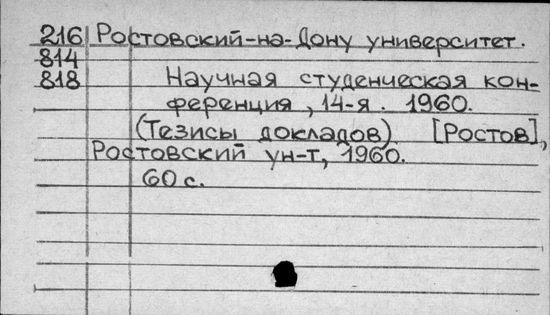 216 Ростовский-на-Дону университет.
814
818 Научная студенческая кон-
ференция, 14-я. 1960.
(Тезисы докладов) [Ростов],
Ростовский ун-т, 1960.
60 с.